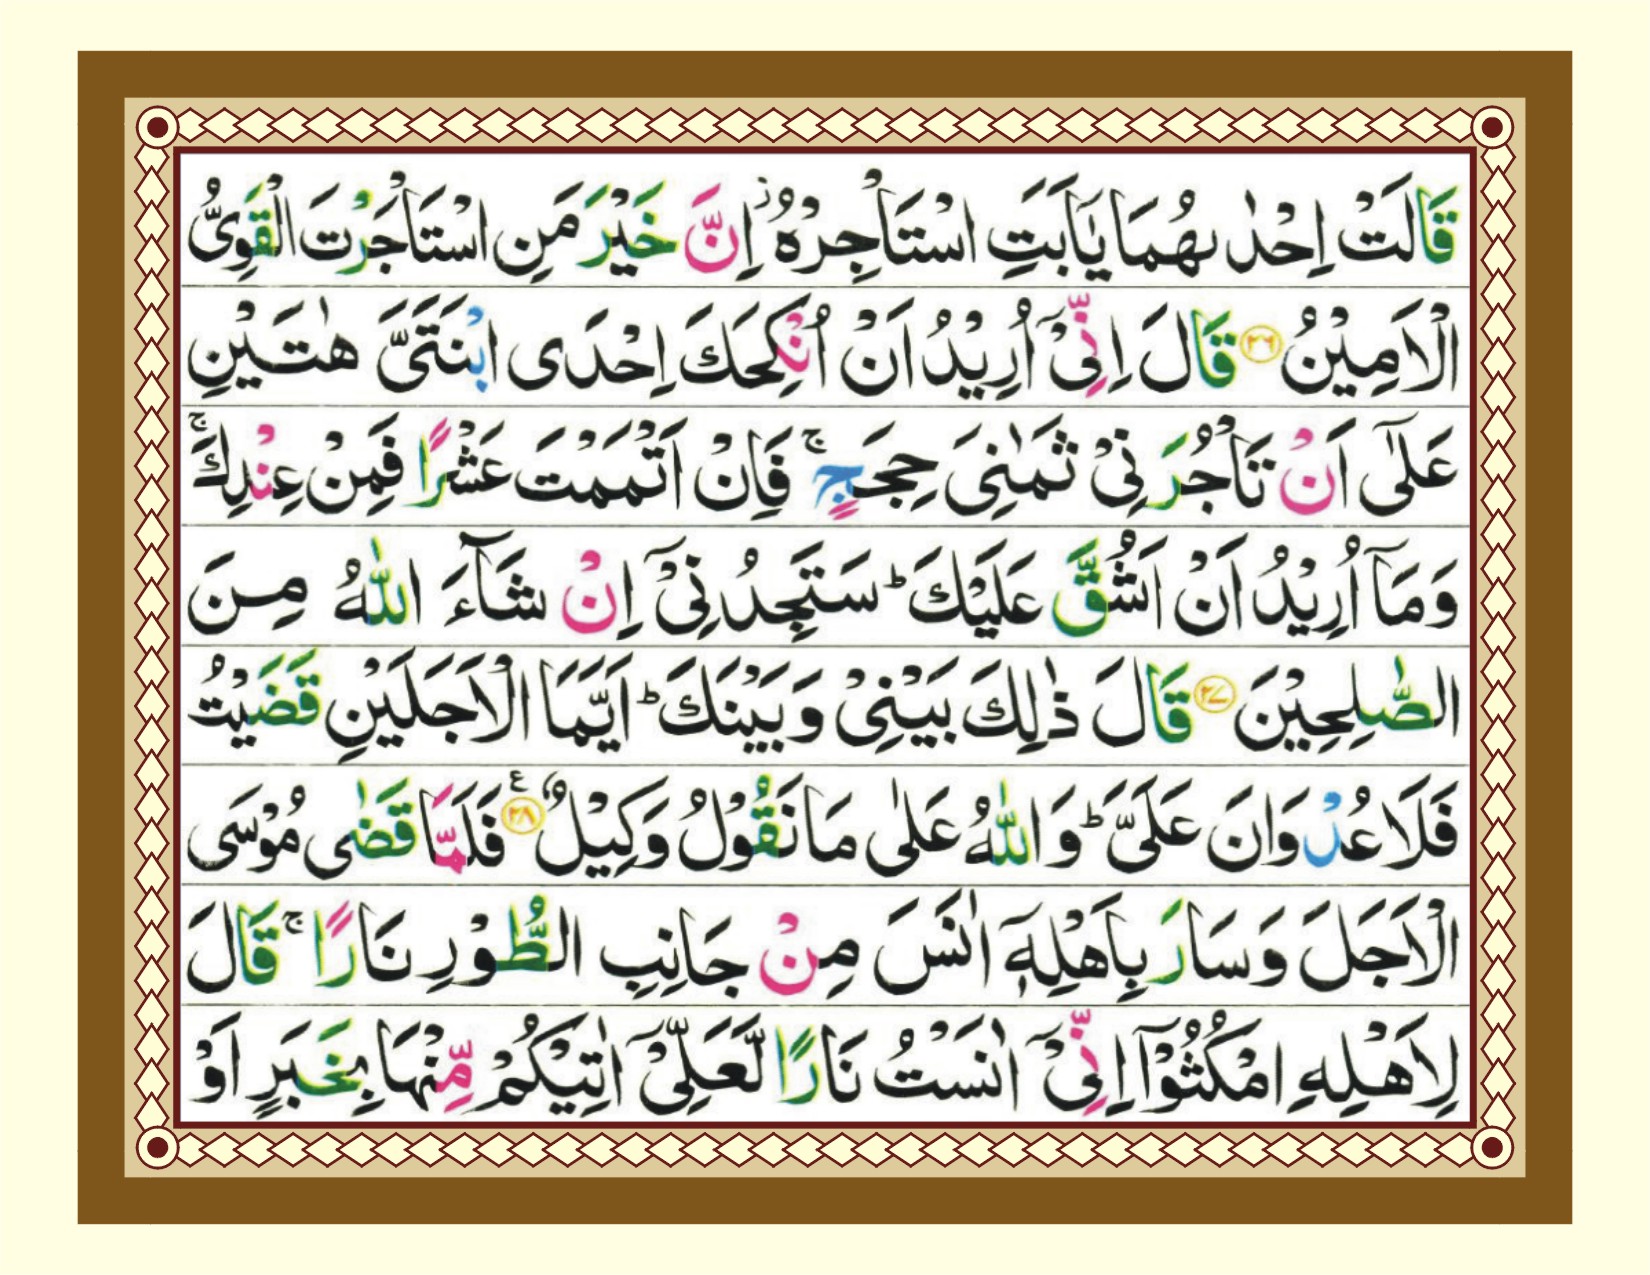 قَالَتْ اِحْدٰىهُمَا يٰۤاَبَتِ اسْتَاْجِرْهُ ؗ اِنَّ خَيْرَ مَنِ اسْتَاْجَرْتَ الْقَوِىُّ
الْاَمِيْنُ ﴿۲۶﴾ قَالَ اِنِّىْۤ اُرِيْدُ اَنْ اُنْكِحَكَ اِحْدَى ابْنَتَىَّ هٰتَيْنِ
عَلٰٓى اَنْ تَاْجُرَنِىْ ثَمٰنِىَ حِجَجٍ ۚ فَاِنْ اَتْمَمْتَ عَشْرًا فَمِنْ عِنْدِكَ ۚ
وَمَاۤ اُرِيْدُ اَنْ اَشُقَّ عَلَيْكَ ؕ سَتَجِدُنِىْۤ اِنْ شَآءَ اللّٰهُ مِنَ
الصّٰلِحِيْنَ ﴿۲۷﴾ قَالَ ذٰلِكَ بَيْنِىْ وَبَيْنَكَ ؕ اَيَّمَا الْاَجَلَيْنِ قَضَيْتُ
فَلَا عُدْوَانَ عَلَىَّ ؕ وَاللّٰهُ عَلٰى مَا نَقُوْلُ وَكِيْلٌ ﴿۲۸﴾ ع فَلَمَّا قَضٰى مُوْسَى
الْاَجَلَ وَسَارَ بِاَهْلِهٖۤ اٰنَسَ مِنْ جَانِبِ الطُّوْرِ نَارًا ۚ قَالَ
لِاَهْلِهِ امْكُثُوْۤا اِنِّىْۤ اٰنَسْتُ نَارًا لَّعَلِّىْۤ اٰتِيْكُمْ مِّنْهَا بِخَبَرٍ اَوْ